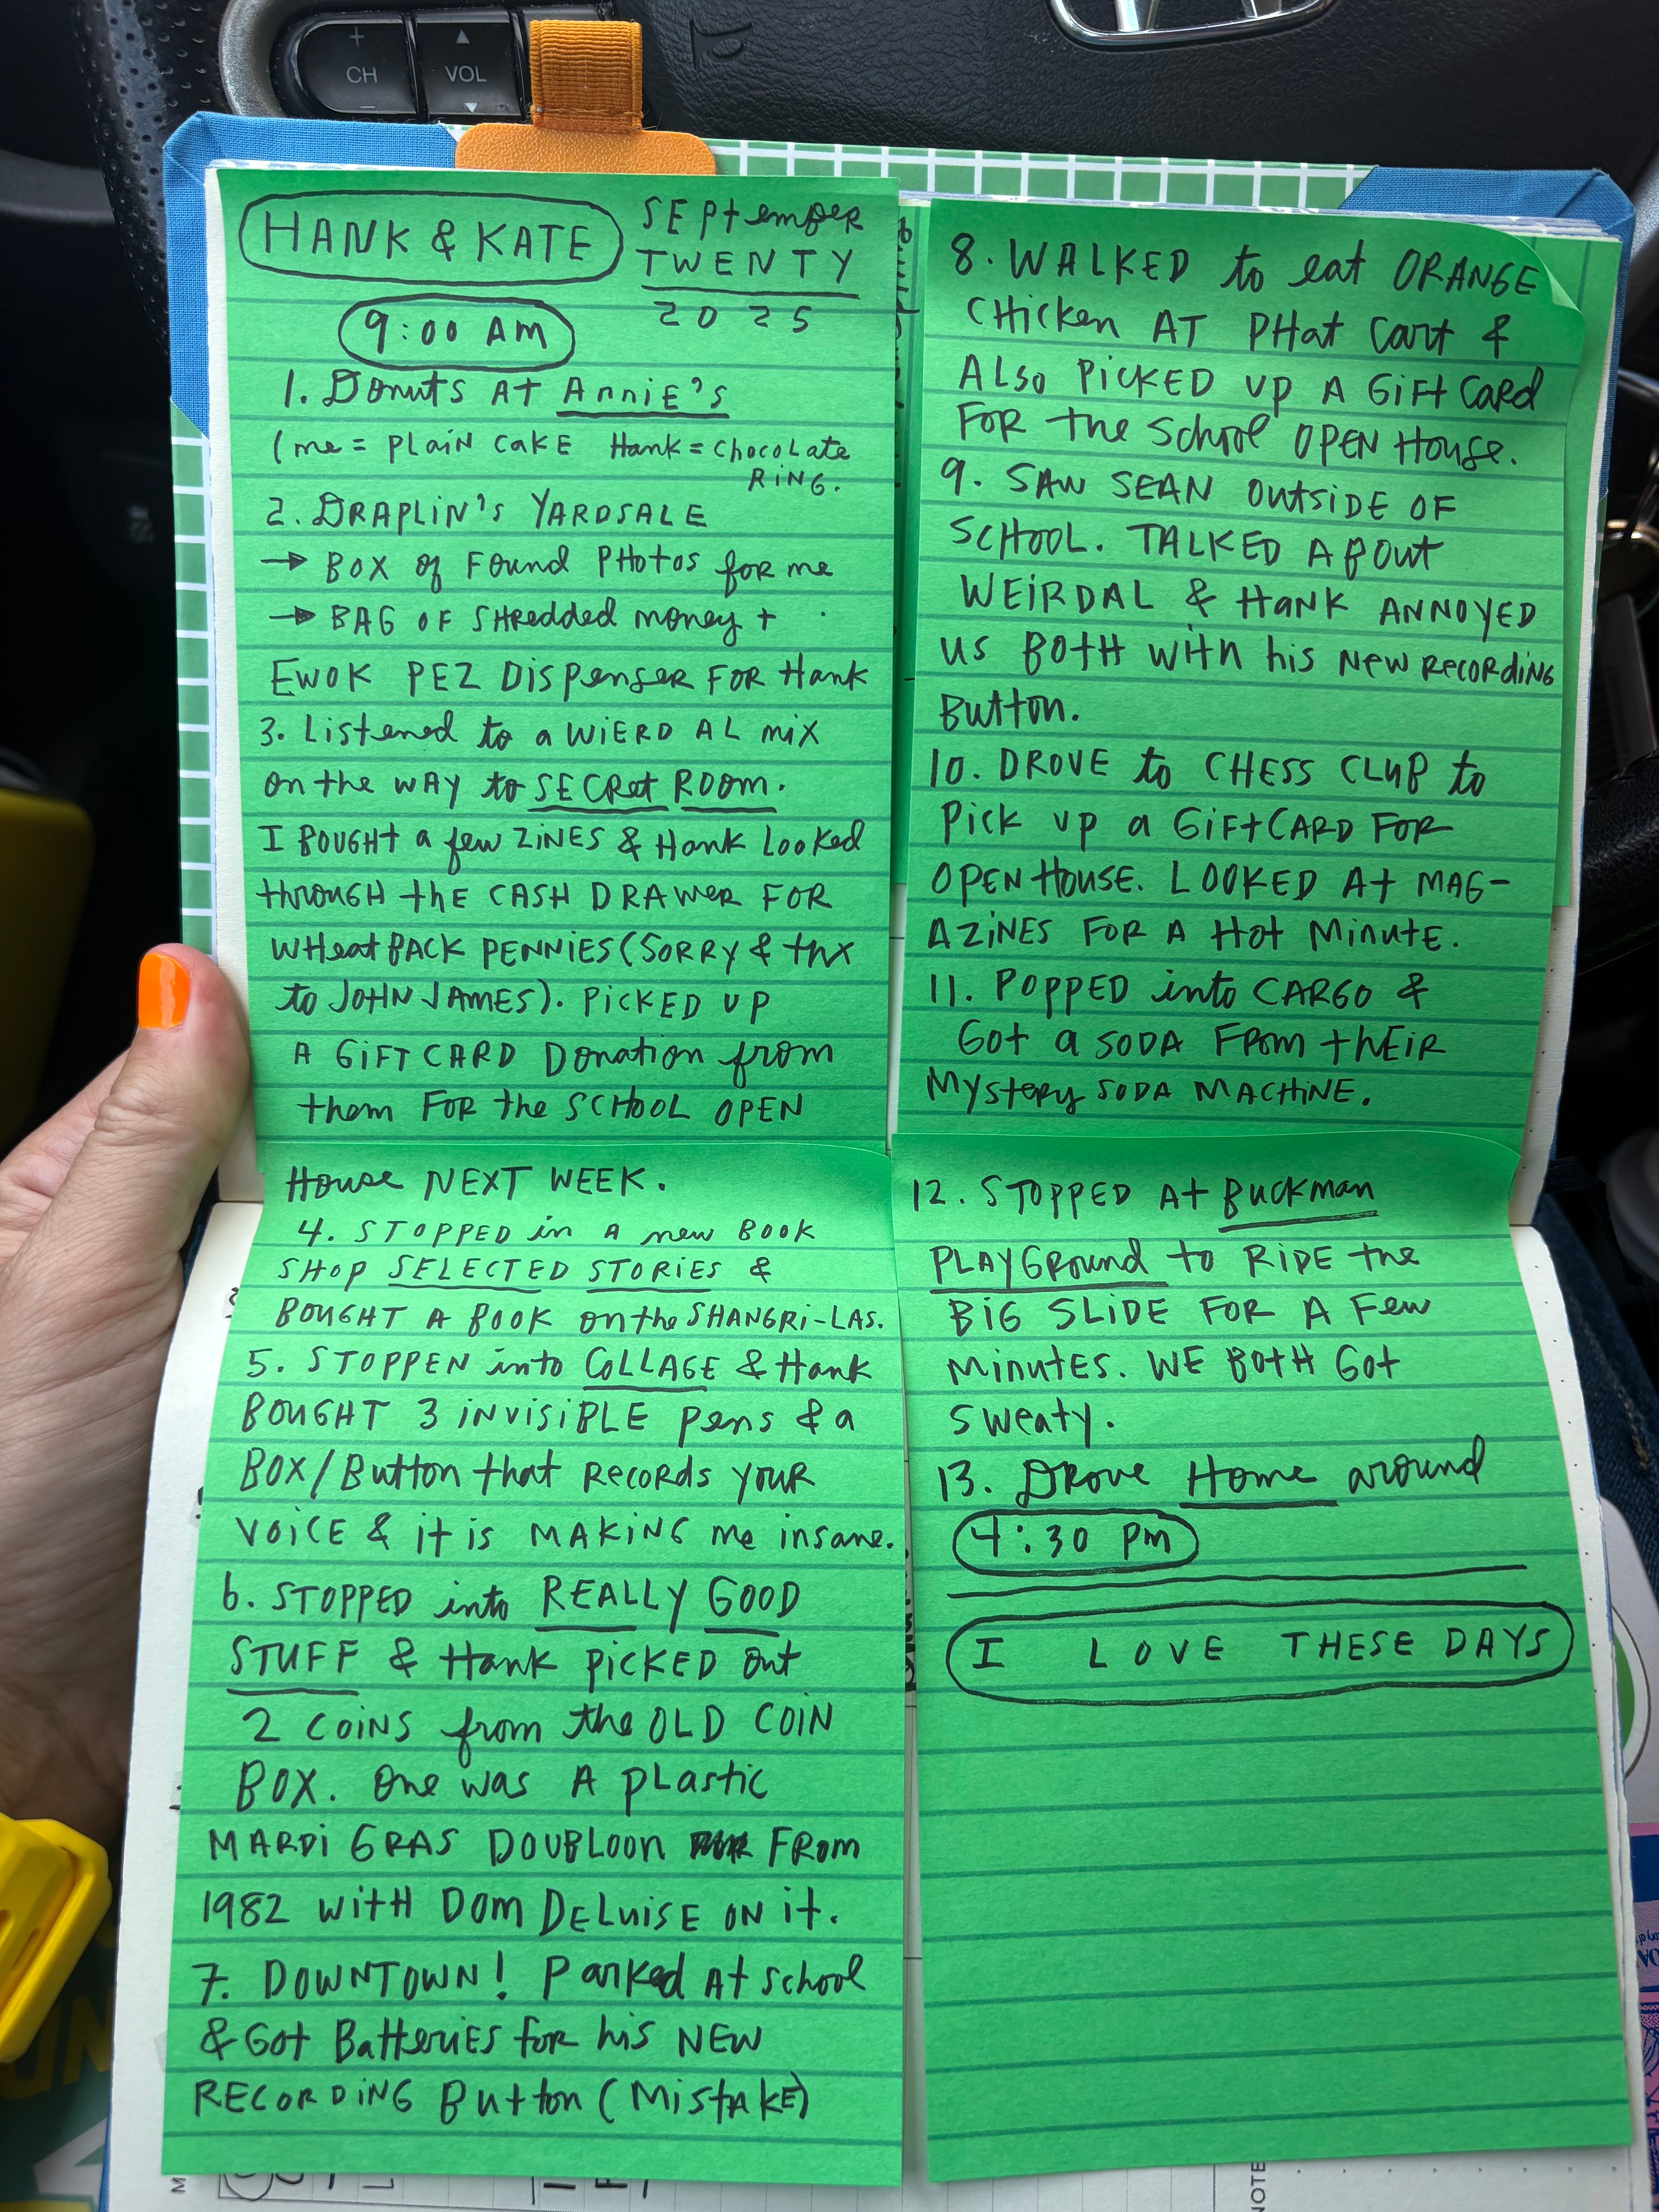 CH
VOL
HANK & KATE
SEPtember
TWENTY
2025
9:00 AM
1. Donuts At AnniE's
(me = PLAIN CAKE Hank = CHOCOLate
RiNG.
2. DRAPLiN's YARDSALE
→ BOX of Found PHOtos foR me
→ BAG OF SHRedded money +
EWOK PEZ DispenSER FOR Hank
3. Listened to a WiERD AL miX
on the WAY to SECRet ROOM.
I BOUGHT a few ZiNES & Hank Looked
thROUGH thE CASH DRAWER FOR
WHeatBACK PENNIES (SORRY & thx
to JOHN JAMES). PiCKED UP
A GiFT CARD DOnation from
them FOR the SCHOOL OPEN
House NEXT WEEK.
4. STOPPED in A new BOOK
SHOP SELECTED STORIES &
BOUGHT A BOOK on the SHANGRi-LAS.
5. STOPPEN into COLLAGE & Hank
BOUGHT 3 iNVISiBLE pens & a
BOX/Button that RECORDS YOUR
VOiCE & it is MAKiNG me insane.
6. STOPPED into REALLY GOOD
STUFF & Hank PiCKED out
2 COiNS from the OLD COiN
BOX. One was A PLastic
MARDi GRAS DOUBLOON FROM
1982 WitH DOM DELUiSE ON it.
7. DOWNTOWN! Parked At School
& Got BattERiES foR his NEW
RECORDiNG Button (MiStAKE)
8. WALKED to eat ORANGE
CHicken AT PHat Cart &
ALSO PiCKED UP A GiFt CaRd
FOR the School OPEN House.
9. SAW SEAN OUtSiDE OF
SCHOOL. TALKED ABOUt
WEiRDAL & HaNK ANNOYED
US BOtH WitH his NEW RECORDiNG
Button.
10. DROVE to CHESS CLUB to
Pick up a GiFtCARD FOR
OPEN HOUSE. LOOKED At MAG-
AZiNES FOR A Hot MinutE.
11. POPPED into CARGO &
Got a SODA FROM thEiR
MYSteRy SODA MACHiNE.
12. STOPPED At BUCKMAN
PLAYGRound to RiDE the
BiG SLiDE FOR A FEW
MinutES. WE BOtH Got
Sweaty.
13. DROVE Home around
4:30 pm
I LOVE THESE DAYS